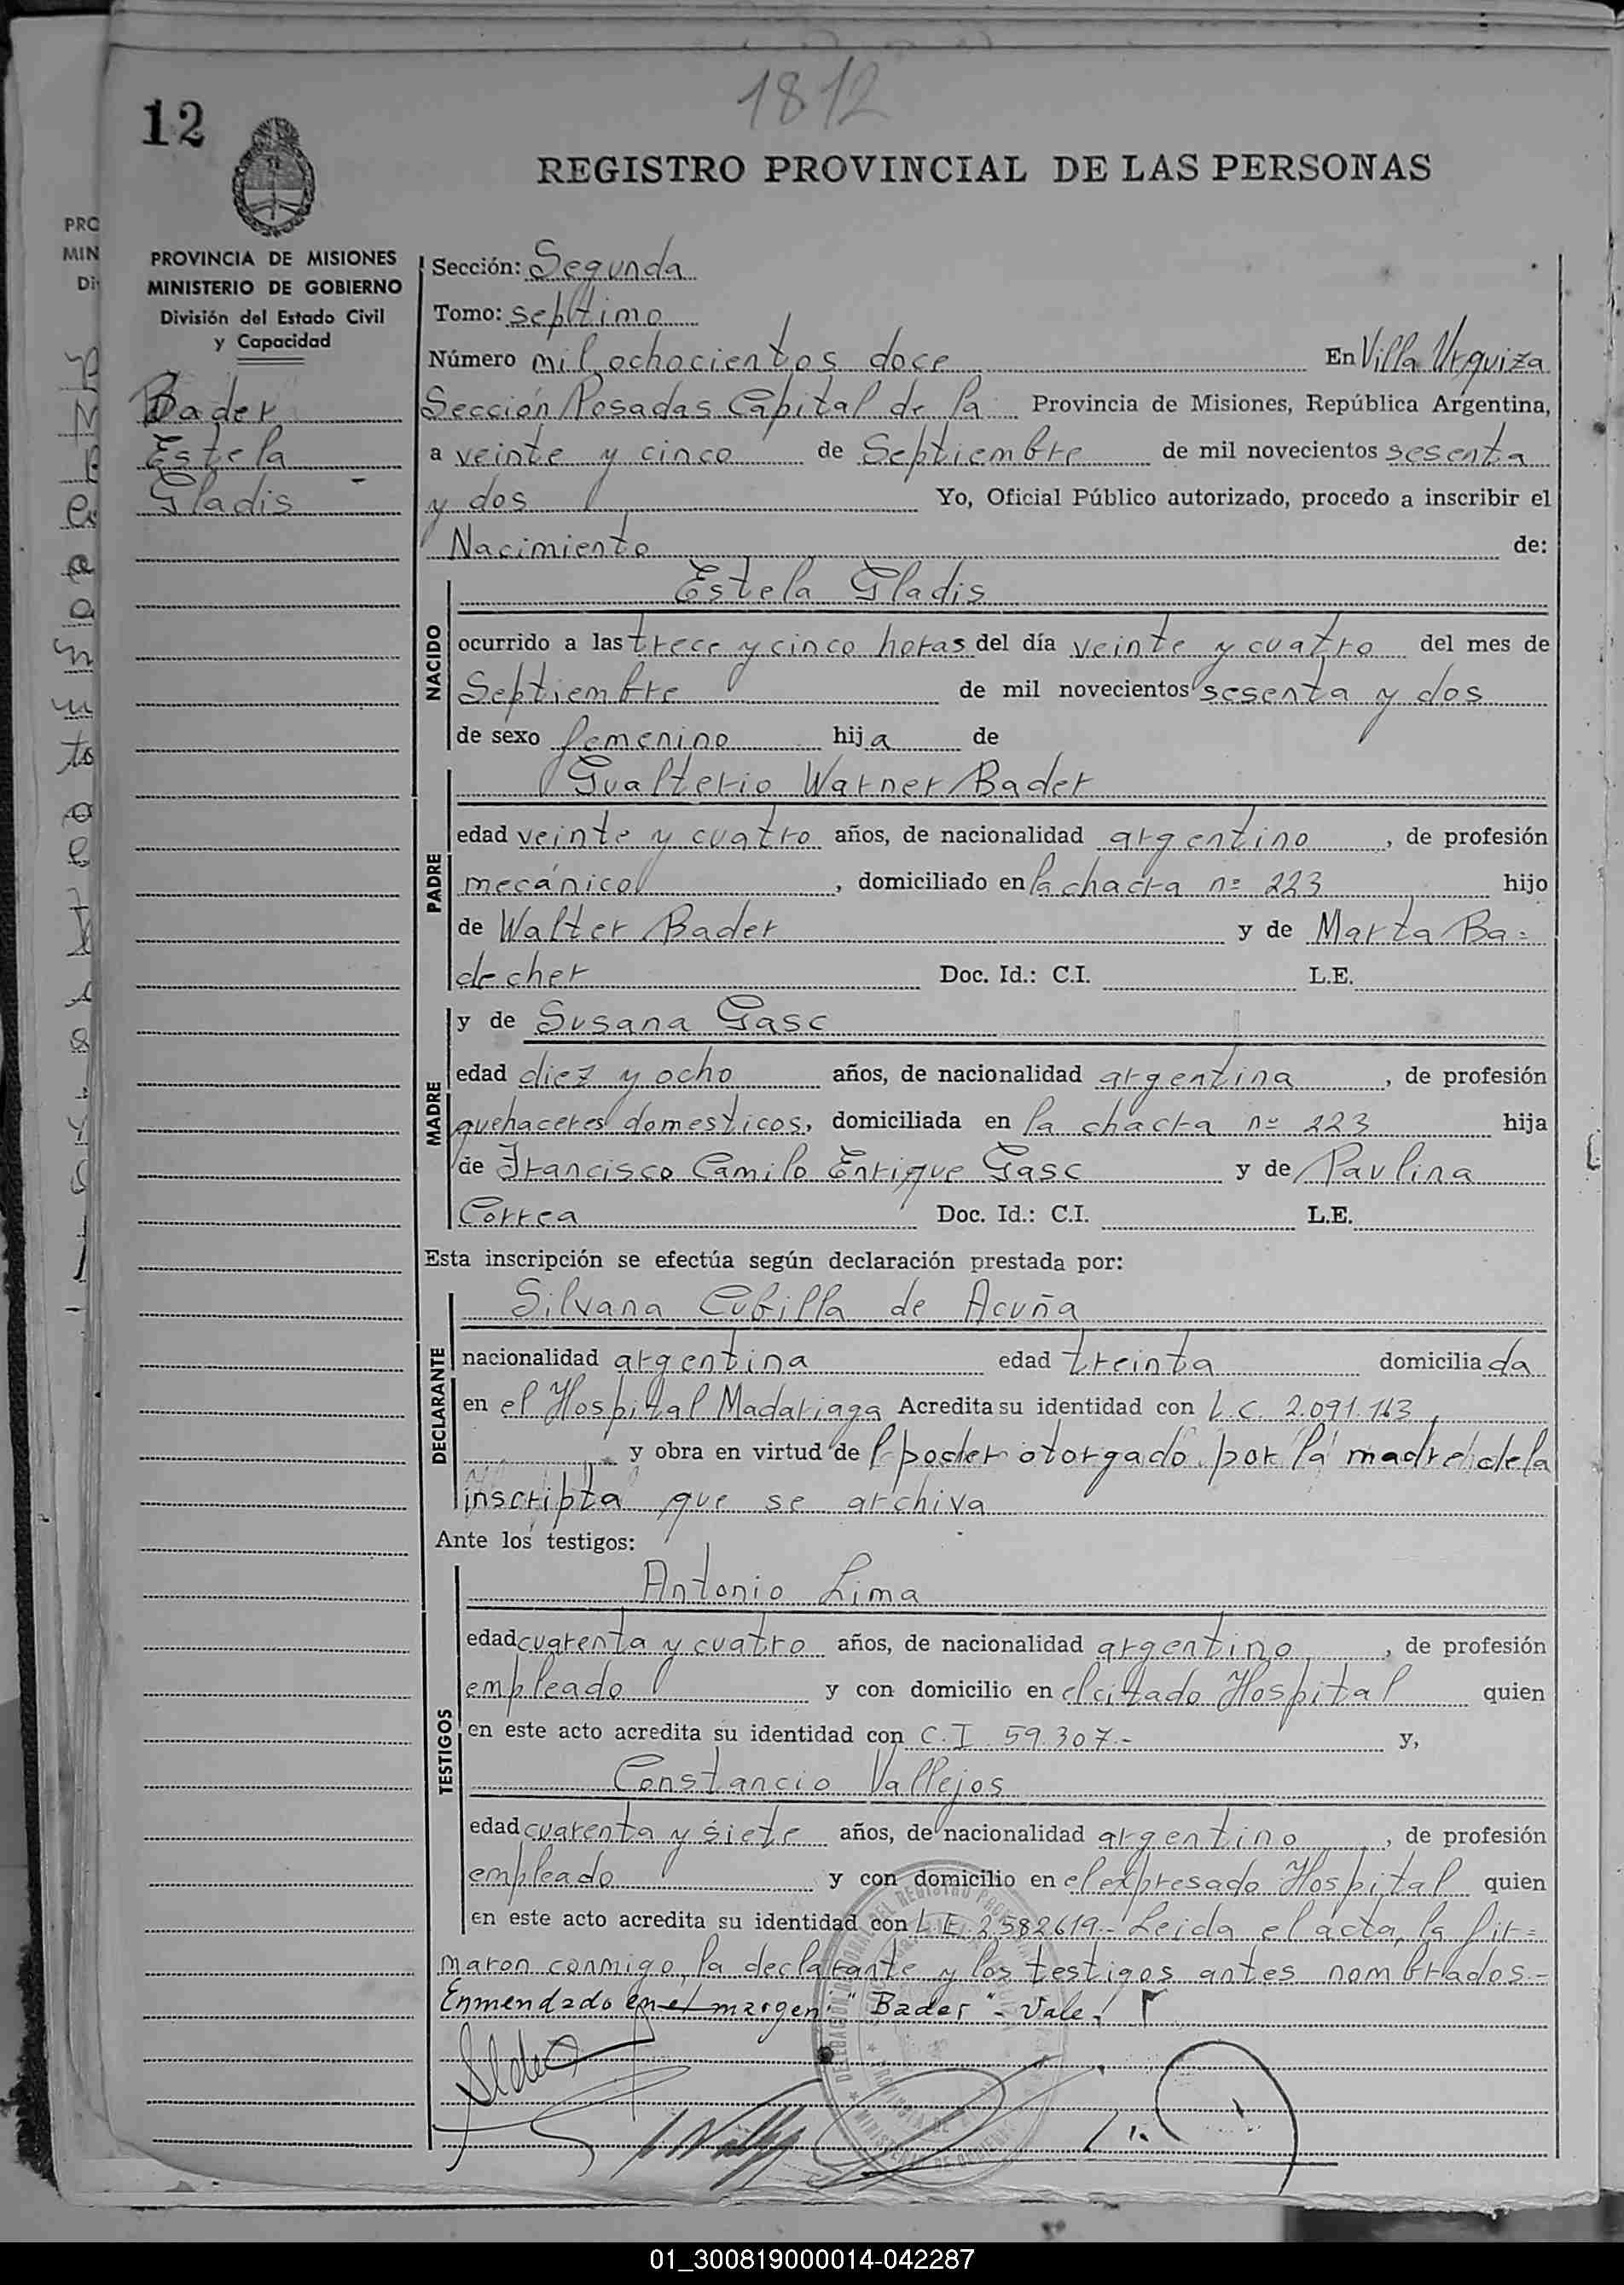 1812
12
REGISTRO PROVINCIAL DE LAS PERSONAS
PROVINCIA DE MISIONES
MINISTERIO DE GOBIERNO
División del Estado Civil
y Capacidad
Bader
Estela
Gladis
Sección: Segunda
Tomo: septimo
Número mil ochocientos doce En Villa Urquiza
Sección Posadas Capital de la Provincia de Misiones, República Argentina,
a veinte y cinco de Septiembre de mil novecientos sesenta
y dos Yo, Oficial Público autorizado, procedo a inscribir el
Nacimiento de:
NACIDO
Estela Gladis
ocurrido a las trece y cinco horas del día veinte y cuatro del mes de
Septiembre de mil novecientos sesenta y dos
de sexo femenino hija de
PADRE
Gualterio Warner Bader
edad veinte y cuatro años, de nacionalidad argentino, de profesión
mecánico, domiciliado en la chacra nº 223 hijo
de Walter Bader y de Marta Ba=
decher Doc. Id.: C.I. L.E.
MADRE
y de Susana Gasc
edad diez y ocho años, de nacionalidad argentina, de profesión
quehaceres domesticos, domiciliada en la chacra nº 223 hija
de Francisco Camilo Enrique Gasc y de Paulina
Correa Doc. Id.: C.I. L.E.
Esta inscripción se efectúa según declaración prestada por:
DECLARANTE
Silvana Cubilla de Acuña
nacionalidad argentina edad treinta domiciliada
en el Hospital Madariaga Acredita su identidad con L.C. 2.091.163
y obra en virtud del poder otorgado por la madre de la
inscripta que se archiva
Ante los testigos:
TESTIGOS
Antonio Lima
edad cuarenta y cuatro años, de nacionalidad argentino, de profesión
empleado y con domicilio en el citado Hospital quien
en este acto acredita su identidad con C.I. 59.307.- y,
Constancio Vallejos
edad cuarenta y siete años, de nacionalidad argentino, de profesión
empleado y con domicilio en el expresado Hospital quien
en este acto acredita su identidad con L.E. 2.582619.- Leida el acta, la fir=
maron conmigo, la declarante y los testigos antes nombrados.-
Enmendado en el margen: "Bader" - Vale.
01_300819000014-042287